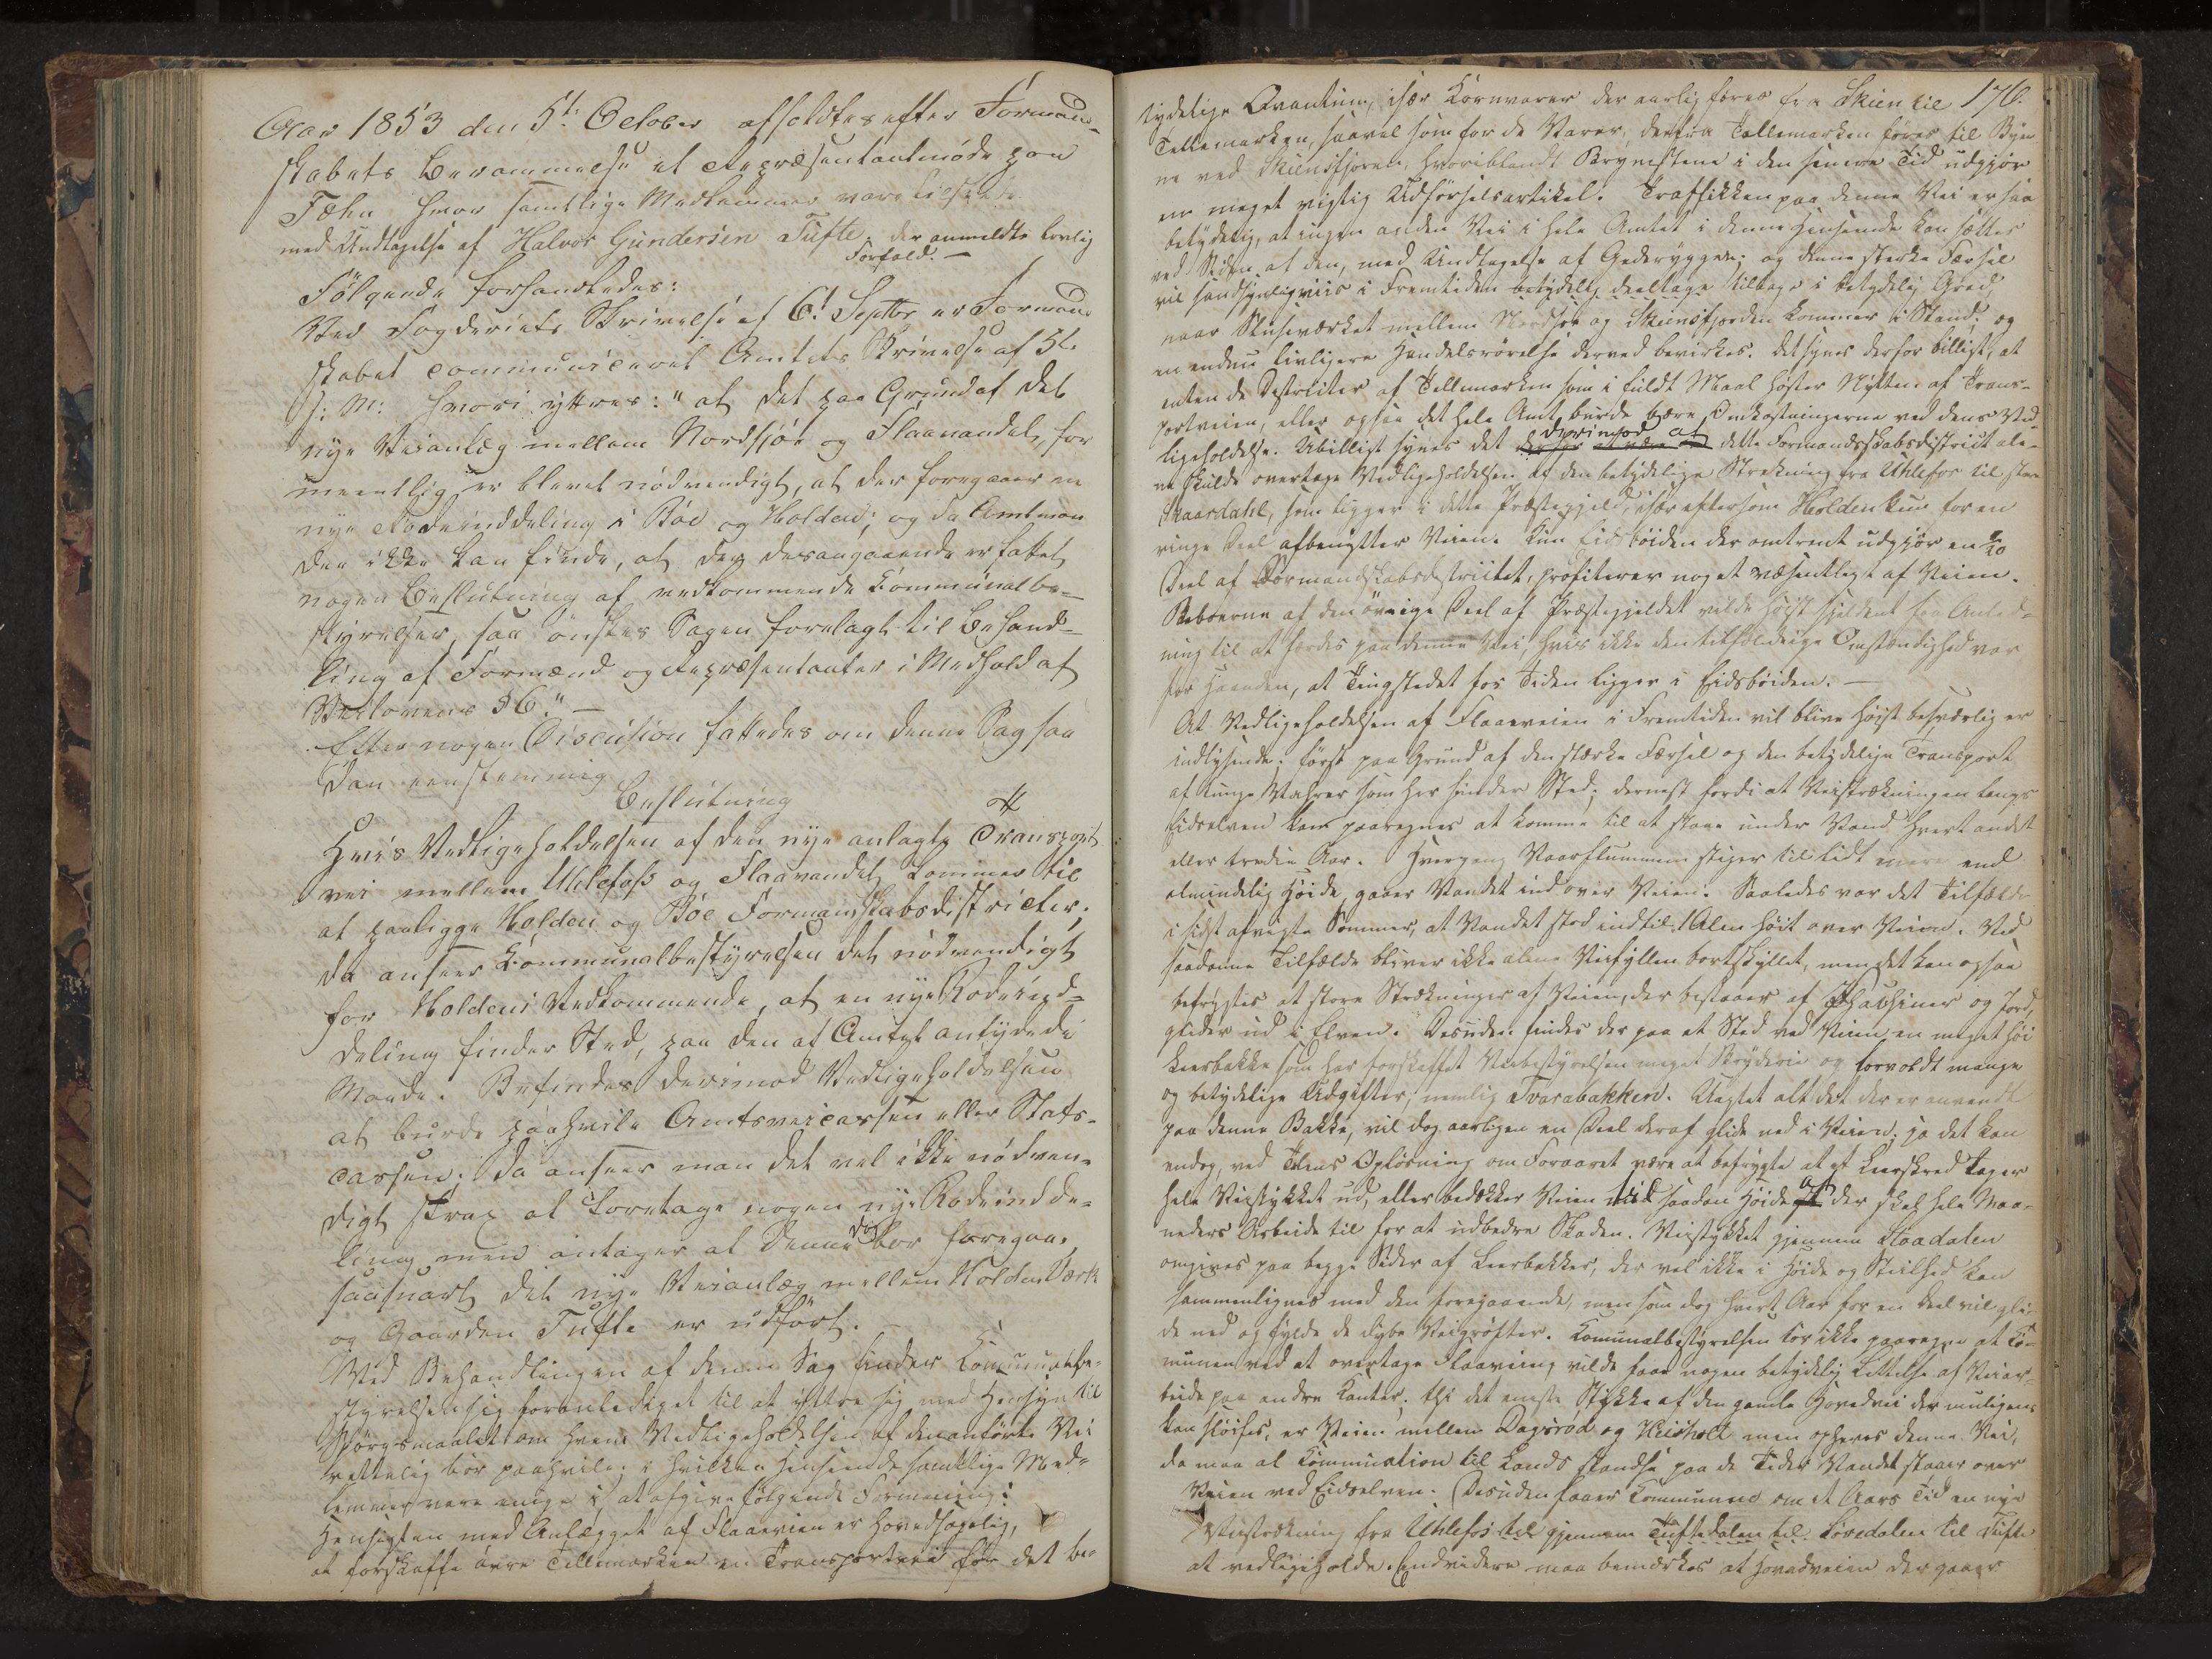 Aar 1853 den 5te October afholdtes efter Formand-
skabets Berammelse et Repræsentantmöde paa
Tæhn hvor samtlige Medlemmer vare tilstede
med Undtagelse af Halvor Gundersen Tufte, der anmeldte lovlig
Forfald. —
Fölgende forhandledes:
Ved Fogderiets Skrivelse af 6t Septbr er Formand
skabet communiceret Amtets Skrivelse af 5te
s: M: hvori yttres: "at det paa Grund af det
nye Veianlæg mellem Nordsjöe og Flaavandet, for
meentlig er blevet nödvendigt, at der foregaaer en
nye Rodeinddeling i Böe og Holden; og da Amtman
den ikke kan finde, at der desangaaende er fattet
nogen Beslutning af vedkommende Communalbe-
styrelser, saa önskes Sagen forelagt til Behand-
ling af Formænd og Repræsentanter i Medhold af
Veilovens § 6." —
Efter nogen Discusion fattedes om denne Sag saa
dan eenstemmig
Beslutning
Hvis Vedligeholdelsen af den nye anlagte Transport
vei mellem Uhlefoss og Flaavandet kommer til
at paaligge Holden og Böe Formandskabsdistricter,
da ansees Kommunalbestyrelsen det nödvendigt
for Holdens Vedkommende, at en nye Rodeind-
deling finder Sted, paa den af Amtet antydede
Maade. Befindes derimod Vedligeholdelsen
at burde paahvile Amtsveicassen eller Stats-
cassen; da anseer man det vel ikke nödven-
digt strax at foretage nogen nye Rodeindde-
ling, men antager at denne dog bör foregaae,
saasnart det nye Veianlæg mellem Holden Værk
og Gaarden Tufte er udfört. —
Ved Behandlingen af denne Sag finder Kommunalbe-
styrelsen sig foranlediget til at yttre sig med Hensyn til
Spörgsmaalet om hvem Vedligeholdelsen af den anförte Vei
rettelig bör paahvile; i hvilken Henseende samtlige Med-
lemmer vare enige i at afgive fölgende Formening:
Hensigten med Anlægget af Flaaveien er hovedsagelig,
at forskaffe övre Tellemarken en Transportvei for det be-
176.
tydelige Qvantum, især Kornvarer der aarlig föres fra Skien til
Tellemarken, saavel som for de Varer, der fra Tellemarken föres til Byer
ne ved Skiensfjorden, hvoriblandt Brynestene i den senere Tid udgjör
en meget vigtig Udförselsartikel. Traffikken paa denne Vei er saa
betydelig, at ingen anden Vei i hele Amtet i denne Henseende kan sættes
ved Siden af den, med Undtagelse af Gederyggen; og denne sterke Færsel
vil sandsynligviis i Fremtiden betydelig deeltage tiltage i betydelig Grad,
naar Sluseværket mellem Nordsjø og Skiensfjorden kommer i Stand; og
en endnu livligere Handelsrörelse derved bevirkes. Det synes derfor billigt, at
enten de Districter af Tellemarken som i fuldt Maal höster Nytten af Trans-
portveien, eller ogsaa det hele Amt burde bære Omkostningerne ved dens Ved-
ligeholdelse. Ubilligt synes det derimod at dette Formandskabsdistrict ale-
ne skulde overtage Vedligeholdelsen af den betydelige Strekning fra Uhlefos til store
Kaasdahl, som ligger i dette Præstegjeld, især eftersom Holden kun for en
ringe Deel afbenytter Veien. Kun Eidsböiden der omtrent udgjör en 1/10
Deel af Formandskabsdistrictet, profiterer noget væsentligt af Veien.
Beboerne af den övrige Deel af Præstegjeldet vilde höist sjeldent faa Anled-
ning til at færdes paa denne Vei, hvis ikke den tilfældige Omstændighed var
for Haanden, at Tingstedet for Tiden ligger i Eidsböiden. —
At Vedligeholdelsen af Flaaveien i Fremtiden vil blive höist besværlig er
indlysende; först paa Grund af den stærke Færsel og den betydelige Transport
af tunge Vahrer som her finder Sted; dernæst fordi at Veistrækningen langs
Eidselven kan paaregnes at komme til at staae under Vand hvert andet
eller tredie Aar. Hvergang Vaarflommen stiger til lidt mere end
almindelig Höide, gaaer Vandet ind over Veien. Saaledes var det Tilfælde
i sidst afvigte Sommer, at Vandet stod indtil 1 Alen höit over Veien. Ved
saadanne Tilfælde bliver ikke alene Veifyllen bortskyllet, men det kan ogsaa
befrygtes at store Strækninger af Veien, der bestaaer af Faskiner og Jord,
glider ud i Elven. Desuden findes der paa et Sted ved Veien en meget höi
Leerbakke som har forskaffet Veibestyrelsen meget Bryderie og forvoldt mange
og betydelige Udgifter, nemlig Tvarabakken. Uagtet alt det der er anvendt
paa denne Bakke, vil dog aarligen en Deel deraf glide ned i Veien; ja det kan
endog, ved Telens Oplösning om Foraaret være at befrygte at et Leerskred tager
hele Veistykket ud, eller bedækker Veien til saadan Höide at der skal hele Maa-
neders Arbeide til for at udbedre Skaden. Veistykket gjennem Aaadalen
omgives paa begge Sider af Leerbakker, der vel ikke i Höide og Steilhed kan
sammenlignes med den foregaaende, men som dog hvert Aar for en Deel vil gli-
de ned og fylde de dybe Veigröfter. Komunalbestyrelsen tör ikke paaregne at Ko-
munen ved at overtage Flaaveien, vilde faae nogen betydelig Lettelse af Veiar-
beide paa andre Kanter; thi det eneste Stykke af den gamle Hovedvei der muligens
kan slöifes, er Veien mellem Dagsröd og Heisholt men ophæves denne Vei,
da maa al Kommunication til Lands standse paa de Tider Vandet staaer over
Veien ved Eidselven. Desuden faaer Kommunen om et Aars Tid en nye
Veistrækning fra Uhlefos til gjennem Tuftedalen til Lövedalen til Tufte
at vedligeholde. Endvidere maa bemærkes at Hovedveien der gaaer